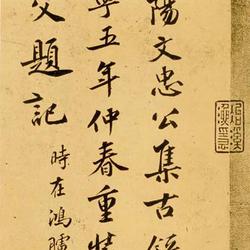 陽文忠公集古錄
寧五年仲春重裝
父題記
時在鴻臚